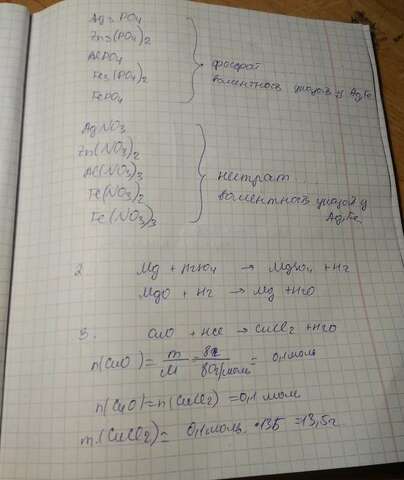 Ag3PO4
Zn3(PO4)2
AlPO4
Fe3(PO4)2
FePO4
фосфат
валентность указав у Ag, Fe
AgNO3
Zn(NO3)2
Al(NO3)3
Fe(NO3)2
Fe(NO3)3
нетрат
валентность указав у
Ag, Fe
2. Mg + H2SO4 → MgSO4 + H2
MgO + H2 → Mg + H2O
3. CuO + HCl → CuCl2 + H2O
n(CuO) = m/M = 8г/80г/моль = 0,1 моль
n(CuO) = n(CuCl2) = 0,1 моль
m(CuCl2) = 0,1 моль · 135 = 13,5г